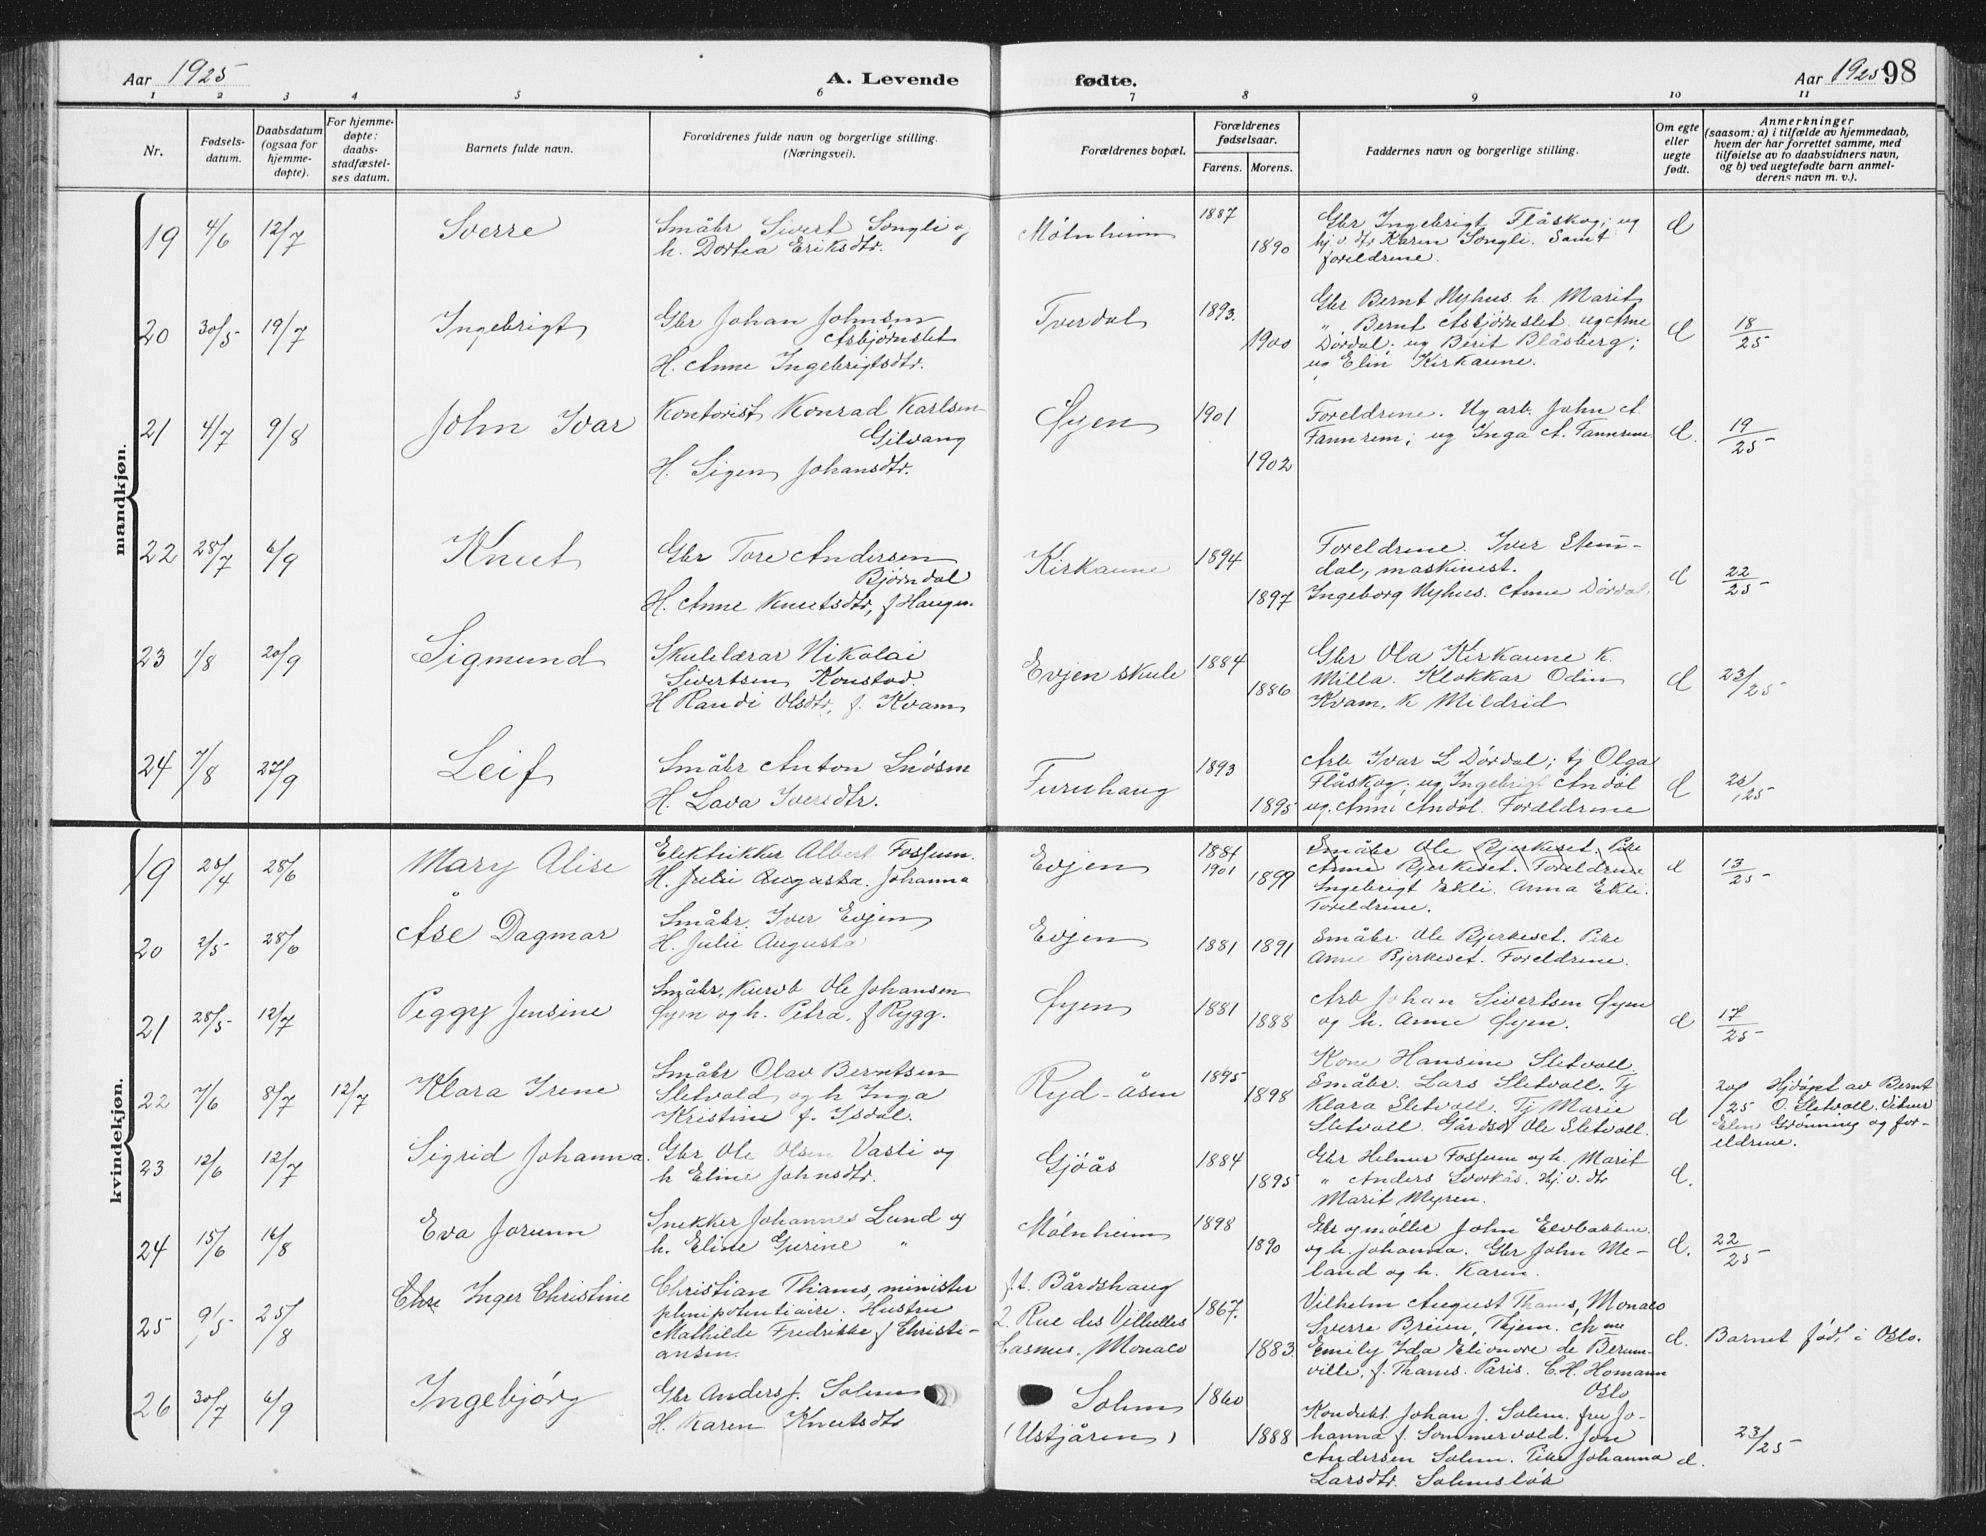 Aar 1925
A. Levende
fødte.
Aar 1925
98
1 2 3 4 5 6 7 8 9 10 11
Nr.
Fødsels-
datum.
Daabsdatum
(ogsaa for
hjemme-
døpte).
For hjemme-
døpte:
daabs-
stadfæstel-
ses datum.
Barnets fulde navn.
Forældrenes fulde navn og borgerlige stilling.
(Næringsvei).
Forældrenes bopæl.
Forældrenes
fødselsaar.
Farens. Morens.
Faddernes navn og borgerlige stilling.
Om egte
eller
uegte
født.
Anmerkninger
(saasom: a) i tilfælde av hjemmedaab,
hvem der har forrettet samme, med
tilføielse av to daabsvidners navn,
og b) ved uegtefødte barn anmel-
derens navn m. v.).
mandkjøn.
19 4/6 12/7 Sverre
Småbr Sivert Songli og
h. Dortea Eriksdtr.
Mólnheim 1887
1890
Gbr Ingebrigt Flåskog; ug
hj. v. dtr Karen Songli. Samt
foreldrene.
d
20 30/5 19/7 Ingebrigt
Gbr Johan Johnsen
Asbjørnslet
H. Anne Ingebrigtsdtr.
Tverdal 1893.
1900
Gbr Bernt Nyhus h. Marit
" Bernt Asbjørnslet. ug Arne
Dørdal. ug Berit Blåsberg;
ug Elin Kirkaune.
d 18/25
21 4/7 9/8 John Ivar
Kontorist Konrad Karlsen
Gilvang
H. Sigen Johansdtr.
Øyen 1901
1902
Foreldrene. Ug arb. John A.
Fannrem; ug Inga A. Fannrem
d. 19/25
22 28/7 6/9 Knut
Gbr Tore Andersen
Bjørndal
H. Anne Knutsdtr, f Haugen.
Kirkaune 1894
1897
Foreldrene. Iver Stem-
dal, maskinist.
Ingeborg Nyhus. Anne Dørdal.
d 22/25
23 1/8 20/9 Sigmund
Skulelærar Nikolai
Sivertsen Konstad.
H Randi Olsdtr, f. Kvam
Evjen skule 1884
1886
Gbr Ola Kirkaune k.
Milla. Klokkar Odin
Kvam, k Mildrid
d 23/25
24 7/8 27/9 Leif
Småbr Anton Snøsen
H. Lava Iversdtr.
Furuhaug 1893
1895
Arb Ivar L Dørdal; tj Olga
Flåskog; ug Ingebrigt Andól
ug. Anne Andól. Foreldrene
d 25
kvindekjøn.
19 25/4 28/6 Mary Alise
Elektrikker Albert Fossum.
H. Julie Augusta. Johanna
Evjen 1884
1901 1899
Småbr Ole Bjerkeset. Pike
Anne Bjerkeset. Foreldrene
Ingebrigt Ekli. Anna Ekli.
Foreldrene.
d 13/25
20 2/5 28/6 Åse Dagmar
Småbr. Iver Evjen
H. Julie Augusta
Evjen 1881 1891
Småbr. Ole Bjerkeset. Pike
Anne Bjerkeset. Foreldrene.
21 28/5 12/7 Peggy Jensine
Småbr, Kurvb Ole Johansen
Øyen og h. Petra, f Rygg.
Øyen 1881
1888
Arb Johan Sivertsen Øyen
og h. Anne Øyen.
d 17/25
22 7/6 8/7 12/7 Klara Irene
Småbr Olav Berntsen
Sletvold og h Inga
Kristine f. Isdal.
Ryd-åsen 1895
1898
Kone Hansine Sletvoll
Småbr. Lars Sletvoll. Tj
Klara Sletvoll. Tj Marie
Sletvoll. Gårds Ole Sletvoll.
d
20/25 Hjdøpt av Bernt
O. Sletvoll. Vitner
Elen Grønning og for-
eldrene.
23 12/6 12/7 Sigrid Johanna
Gbr Ole Olsen Vasli og
h Eline Johnsdtr.
Gjøås 1884
1895
Gbr Helmer Fossum og h. Marit
" Anders Svorkås. Hj. v. dtr
Marit Myren.
d.
24 15/6 16/8 Eva Jorunn
Snekker Johannes Lund og
h. Eline Gurine "
Mólnheim 1898
1890
Gbr og møller John Elvbakken
og h. Johanna. Gbr John Me-
land og h. Karen.
d. 22/25
25 9/5 25/8 Inger Christine
Christian Thams, minister
plenipotentiaire. Hustru
Mathilde Fredrikke f Christi-
ansen.
f.t. Bårdshaug
2. Rue des Villules
Casmes. Monaco
1867.
1883
Vilhelm August Thams, Monaco
Sverre Breien, Thjem.
Emily Ida Elionore de Berum-
ville, f. Thams. Paris. C. H. Homann
Oslo
d. Barnet født i Oslo.
26 30/7 6/9 Ingebjørg
Gbr Anders J. Solem
H. Karen Knutsdtr
Solem
(Ustjåren)
1860
1888
Kondukt. Johan J. Solem. fru Jo-
hanna f. Sommervold. Jon
Andersen Solem. Pike Johanna
Larsdtr. Solemsløk
d. 23/25